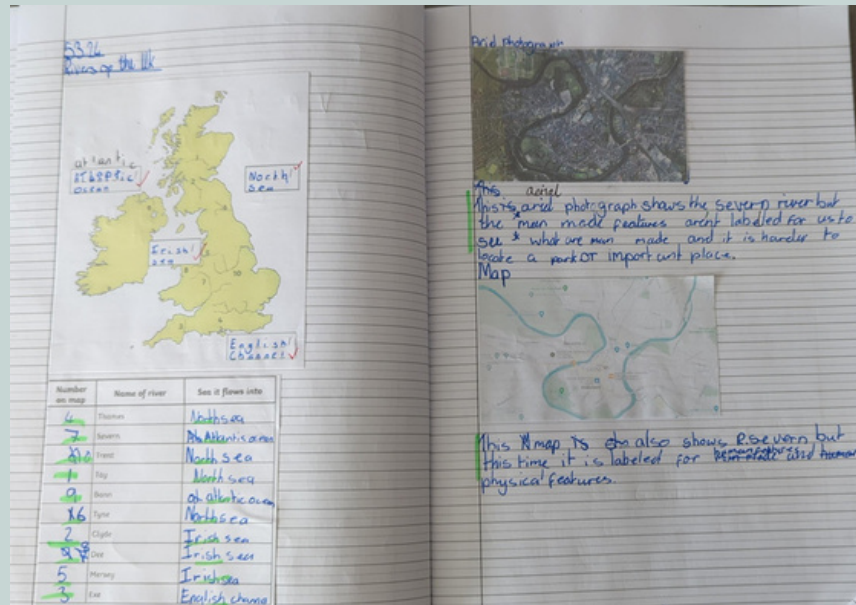 5.3.24
Rivers of the UK
atlantic
Atlantic
Ocean
North
Sea
Irish
Sea
English
Channel
10
Number on map Name of river Sea it flows into
4 Thames North sea
7 Severn Atlantis ocean
10 Trent North sea
1 Tay North sea
9 Bann at atlatic ocen
6 Tyne North sea
2 Clyde Irish sea
8 Dee Irish sea
5 Mersey Irish sea
3 Exe English channe
Arid photograph
This aeriel
This is arid photograph shows the severn river but
the man made features arent labeled for us to
see what are man made and it is harder to
locate a park or important place.
Map
This map is also shows R.severn but
this time it is labeled for human features and human
physical features.